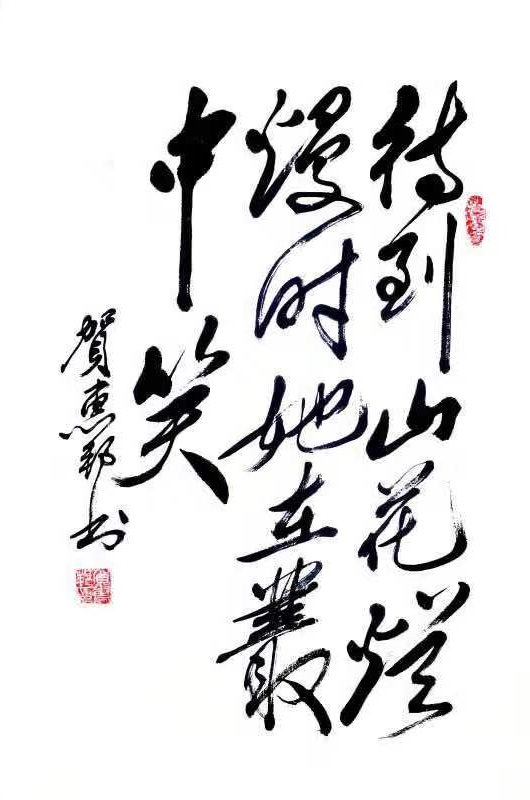 待到山花烂
漫时她在叢
中笑
賀惠邦书